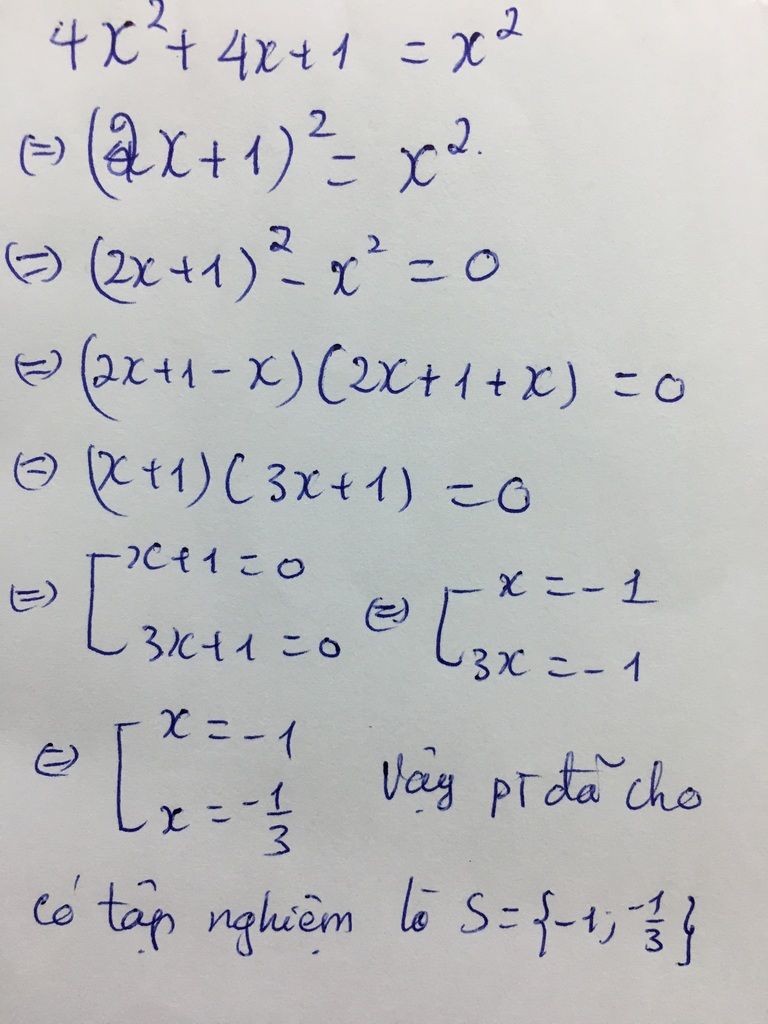 4x² + 4x + 1 = x²
⇔ (2x + 1)² = x².
⇔ (2x + 1)² - x² = 0
⇔ (2x + 1 - x)(2x + 1 + x) = 0
⇔ (x + 1)(3x + 1) = 0
⇔ [ x + 1 = 0 ⇔ [ x = -1
3x + 1 = 0 3x = -1
⇔ [ x = -1 Vậy PT đã cho
x = -1/3
có tập nghiệm là S = {-1; -1/3}